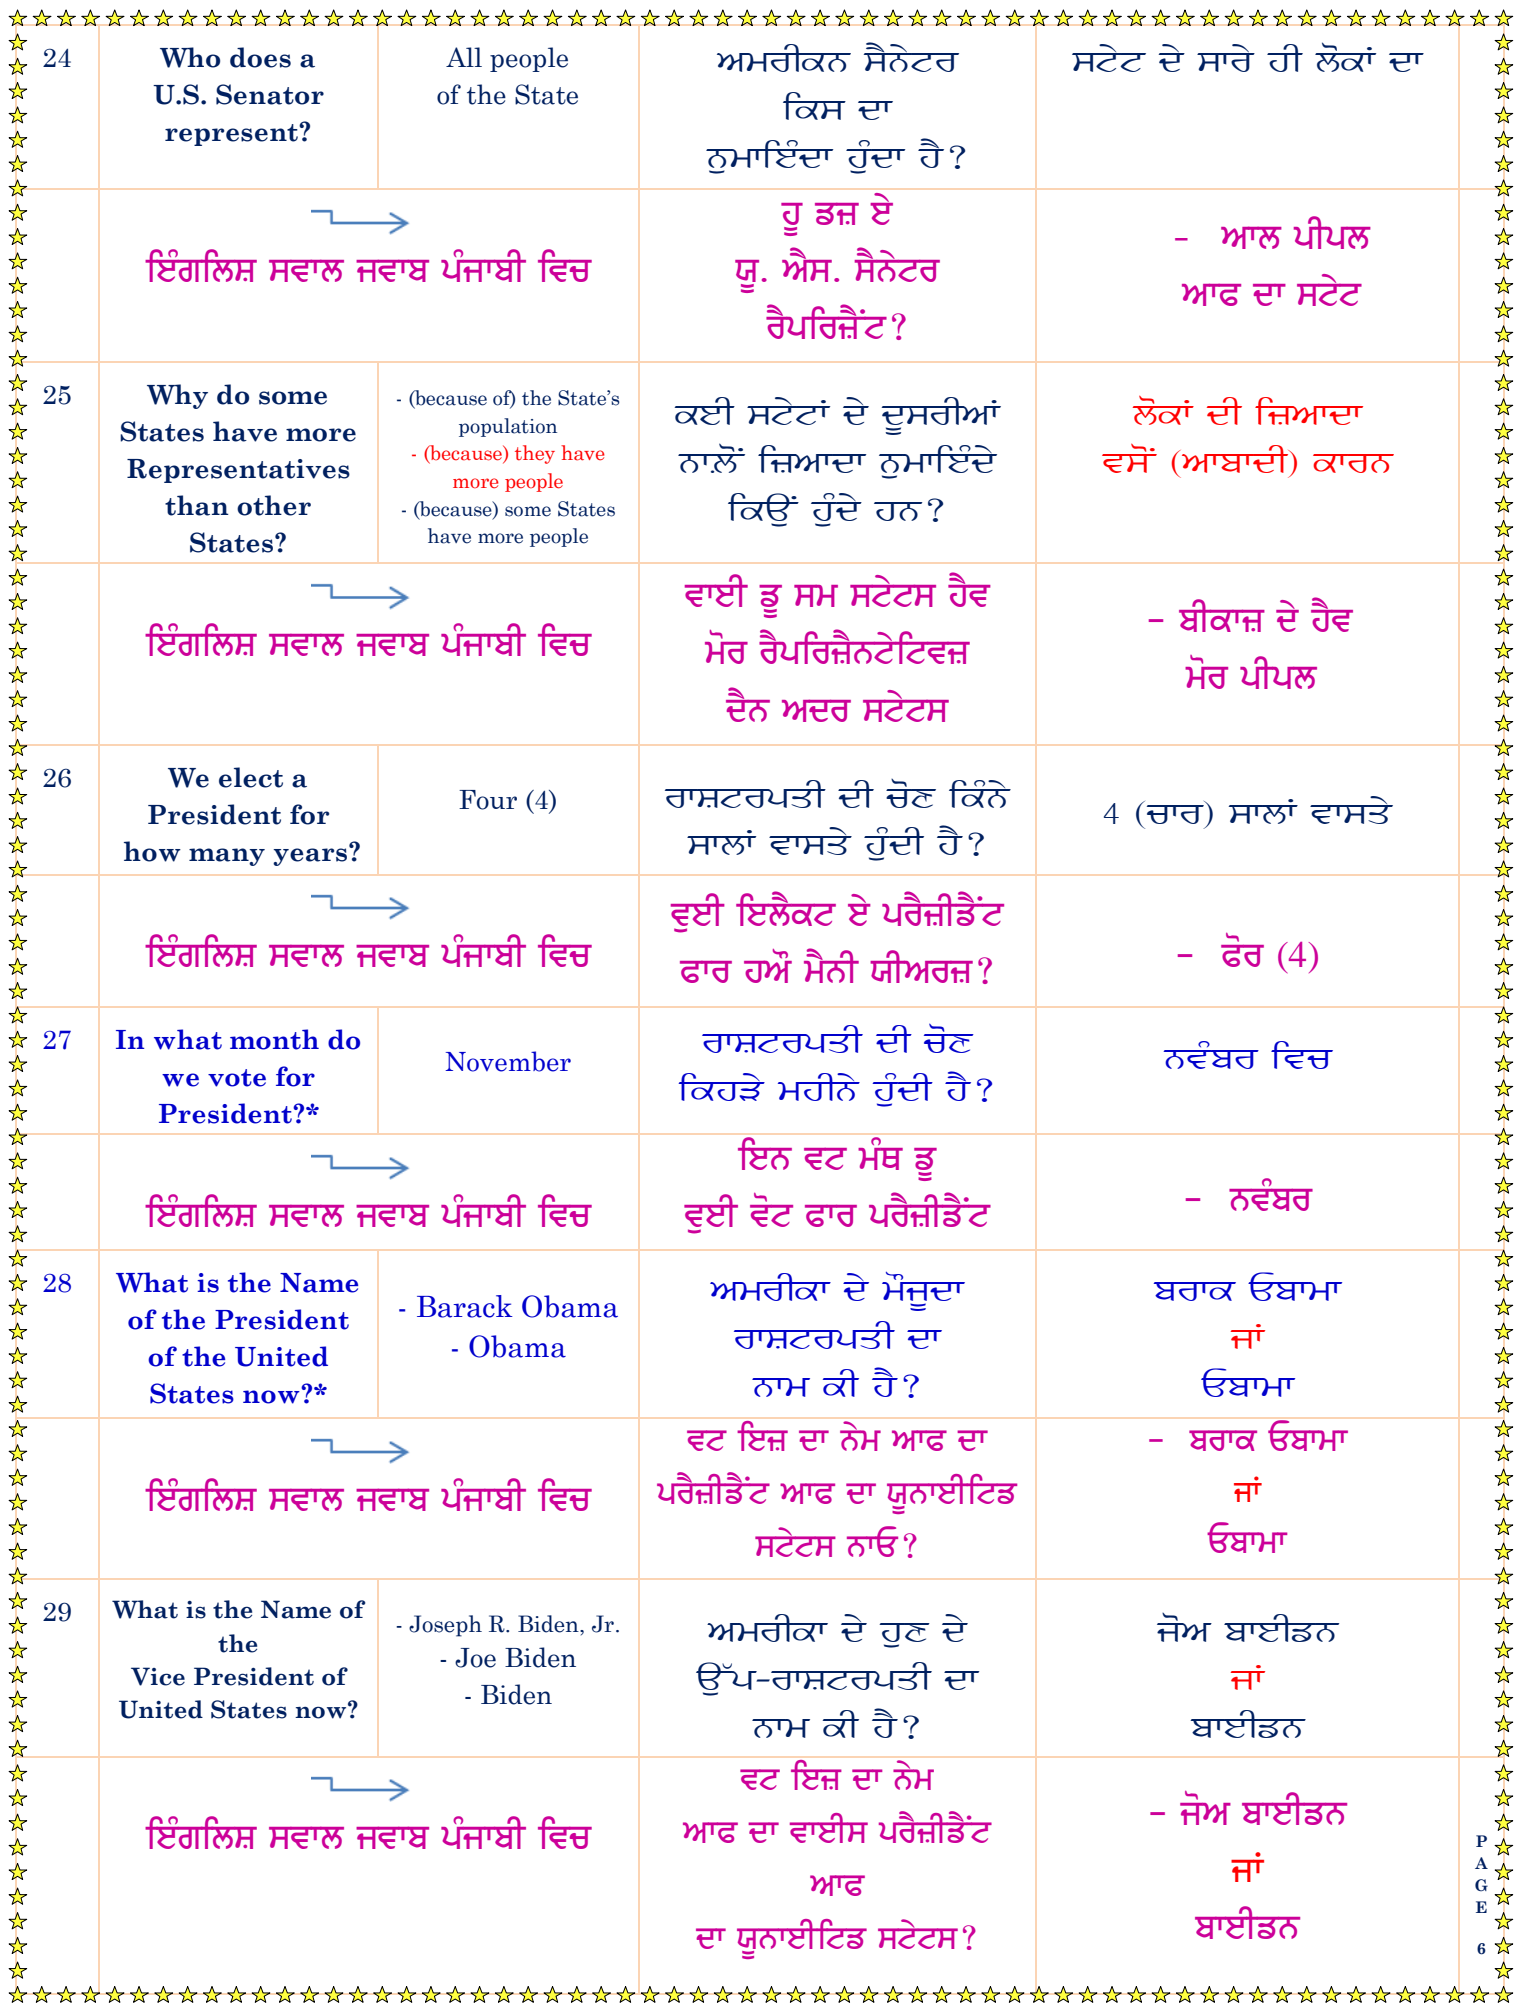 24
Who does a
U.S. Senator
represent?
All people
of the State
ਅਮਰੀਕਨ ਸੈਨੇਟਰ
ਕਿਸ ਦਾ
ਨੁਮਾਇੰਦਾ ਹੁੰਦਾ ਹੈ?
ਸਟੇਟ ਦੇ ਸਾਰੇ ਹੀ ਲੋਕਾਂ ਦਾ
ਇੰਗਲਿਸ਼ ਸਵਾਲ ਜਵਾਬ ਪੰਜਾਬੀ ਵਿਚ
ਹੂ ਡਜ਼ ਏ
ਯੂ. ਐਸ. ਸੈਨੇਟਰ
ਰੈਪਰਿਜ਼ੈਂਟ?
- ਆਲ ਪੀਪਲ
ਆਫ ਦਾ ਸਟੇਟ
25
Why do some
States have more
Representatives
than other
States?
- (because of) the State’s
population
- (because) they have
more people
- (because) some States
have more people
ਕਈ ਸਟੇਟਾਂ ਦੇ ਦੂਸਰੀਆਂ
ਨਾਲ਼ੋਂ ਜ਼ਿਆਦਾ ਨੁਮਾਇੰਦੇ
ਕਿਉਂ ਹੁੰਦੇ ਹਨ?
ਲੋਕਾਂ ਦੀ ਜ਼ਿਆਦਾ
ਵਸੋਂ (ਆਬਾਦੀ) ਕਾਰਨ
ਇੰਗਲਿਸ਼ ਸਵਾਲ ਜਵਾਬ ਪੰਜਾਬੀ ਵਿਚ
ਵਾਈ ਡੂ ਸਮ ਸਟੇਟਸ ਹੈਵ
ਮੋਰ ਰੈਪਰਿਜ਼ੈਨਟੇਟਿਵਜ਼
ਦੈਨ ਅਦਰ ਸਟੇਟਸ
- ਬੀਕਾਜ਼ ਦੇ ਹੈਵ
ਮੋਰ ਪੀਪਲ
26
We elect a
President for
how many years?
Four (4)
ਰਾਸ਼ਟਰਪਤੀ ਦੀ ਚੋਣ ਕਿੰਨੇ
ਸਾਲਾਂ ਵਾਸਤੇ ਹੁੰਦੀ ਹੈ?
4 (ਚਾਰ) ਸਾਲਾਂ ਵਾਸਤੇ
ਇੰਗਲਿਸ਼ ਸਵਾਲ ਜਵਾਬ ਪੰਜਾਬੀ ਵਿਚ
ਵੁਈ ਇਲੈਕਟ ਏ ਪਰੈਜ਼ੀਡੈਂਟ
ਫਾਰ ਹਔ ਮੈਨੀ ਯੀਅਰਜ਼?
- ਫੋਰ (4)
27
In what month do
we vote for
President?*
November
ਰਾਸ਼ਟਰਪਤੀ ਦੀ ਚੋਣ
ਕਿਹੜੇ ਮਹੀਨੇ ਹੁੰਦੀ ਹੈ?
ਨਵੰਬਰ ਵਿਚ
ਇੰਗਲਿਸ਼ ਸਵਾਲ ਜਵਾਬ ਪੰਜਾਬੀ ਵਿਚ
ਇਨ ਵਟ ਮੰਥ ਡੂ
ਵੁਈ ਵੋਟ ਫਾਰ ਪਰੈਜ਼ੀਡੈਂਟ
- ਨਵੰਬਰ
28
What is the Name
of the President
of the United
States now?*
- Barack Obama
- Obama
ਅਮਰੀਕਾ ਦੇ ਮੌਜੂਦਾ
ਰਾਸ਼ਟਰਪਤੀ ਦਾ
ਨਾਮ ਕੀ ਹੈ?
ਬਰਾਕ ਓਬਾਮਾ
ਜਾਂ
ਓਬਾਮਾ
ਇੰਗਲਿਸ਼ ਸਵਾਲ ਜਵਾਬ ਪੰਜਾਬੀ ਵਿਚ
ਵਟ ਇਜ਼ ਦਾ ਨੇਮ ਆਫ ਦਾ
ਪਰੈਜ਼ੀਡੈਂਟ ਆਫ ਦਾ ਯੂਨਾਈਟਿਡ
ਸਟੇਟਸ ਨਾਓ?
- ਬਰਾਕ ਓਬਾਮਾ
ਜਾਂ
ਓਬਾਮਾ
29
What is the Name of
the
Vice President of
United States now?
- Joseph R. Biden, Jr.
- Joe Biden
- Biden
ਅਮਰੀਕਾ ਦੇ ਹੁਣ ਦੇ
ਉੱਪ-ਰਾਸ਼ਟਰਪਤੀ ਦਾ
ਨਾਮ ਕੀ ਹੈ?
ਜੋਅ ਬਾਈਡਨ
ਜਾਂ
ਬਾਈਡਨ
ਇੰਗਲਿਸ਼ ਸਵਾਲ ਜਵਾਬ ਪੰਜਾਬੀ ਵਿਚ
ਵਟ ਇਜ਼ ਦਾ ਨੇਮ
ਆਫ ਦਾ ਵਾਈਸ ਪਰੈਜ਼ੀਡੈਂਟ
ਆਫ
ਦਾ ਯੂਨਾਈਟਿਡ ਸਟੇਟਸ?
- ਜੋਅ ਬਾਈਡਨ
ਜਾਂ
ਬਾਈਡਨ
PAGE 6